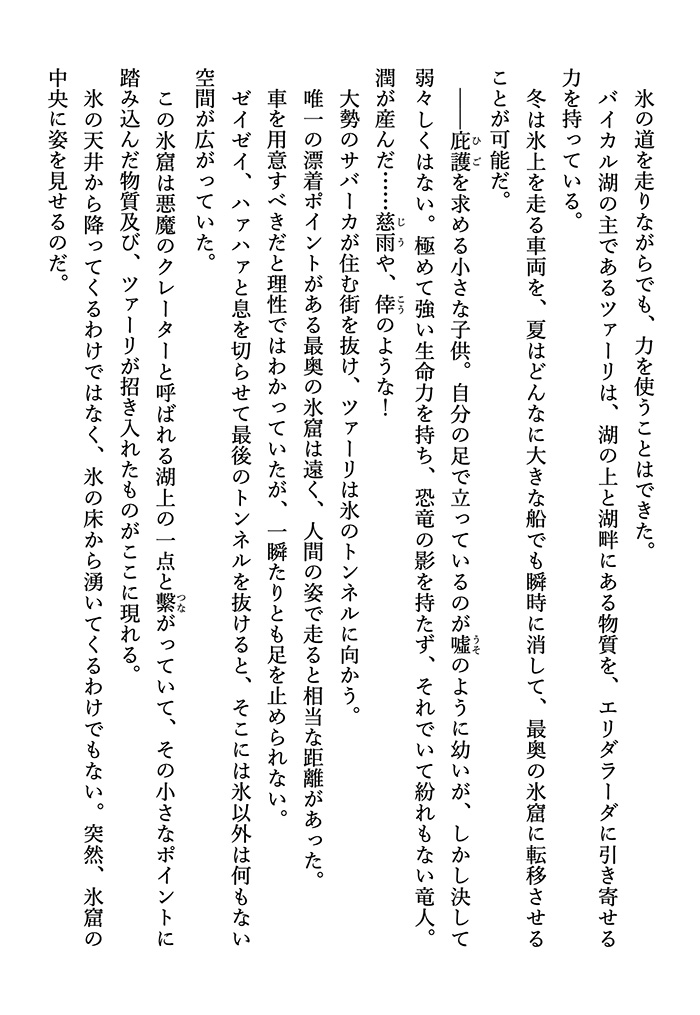 氷の道を走りながらでも、力を使うことはできた。
バイカル湖の主であるツァーリは、湖の上と湖畔にある物質を、エリダラーダに引き寄せる
力を持っている。
冬は氷上を走る車両を、夏はどんなに大きな船でも瞬時に消して、最奥の氷窟に転移させる
ことが可能だ。
――庇護を求める小さな子供。自分の足で立っているのが嘘のように幼いが、しかし決して
弱々しくはない。極めて強い生命力を持ち、恐竜の影を持たず、それでいて紛れもない竜人。
潤が産んだ……慈雨や、倖のような！
大勢のサバーカが住む街を抜け、ツァーリは氷のトンネルに向かう。
唯一の漂着ポイントがある最奥の氷窟は遠く、人間の姿で走ると相当な距離があった。
車を用意すべきだと理性ではわかっていたが、一瞬たりとも足を止められない。
ゼイゼイ、ハァハァと息を切らせて最後のトンネルを抜けると、そこには氷以外は何もない
空間が広がっていた。
この氷窟は悪魔のクレーターと呼ばれる湖上の一点と繋がっていて、その小さなポイントに
踏み込んだ物質及び、ツァーリが招き入れたものがここに現れる。
氷の天井から降ってくるわけではなく、氷の床から湧いてくるわけでもない。突然、氷窟の
中央に姿を見せるのだ。